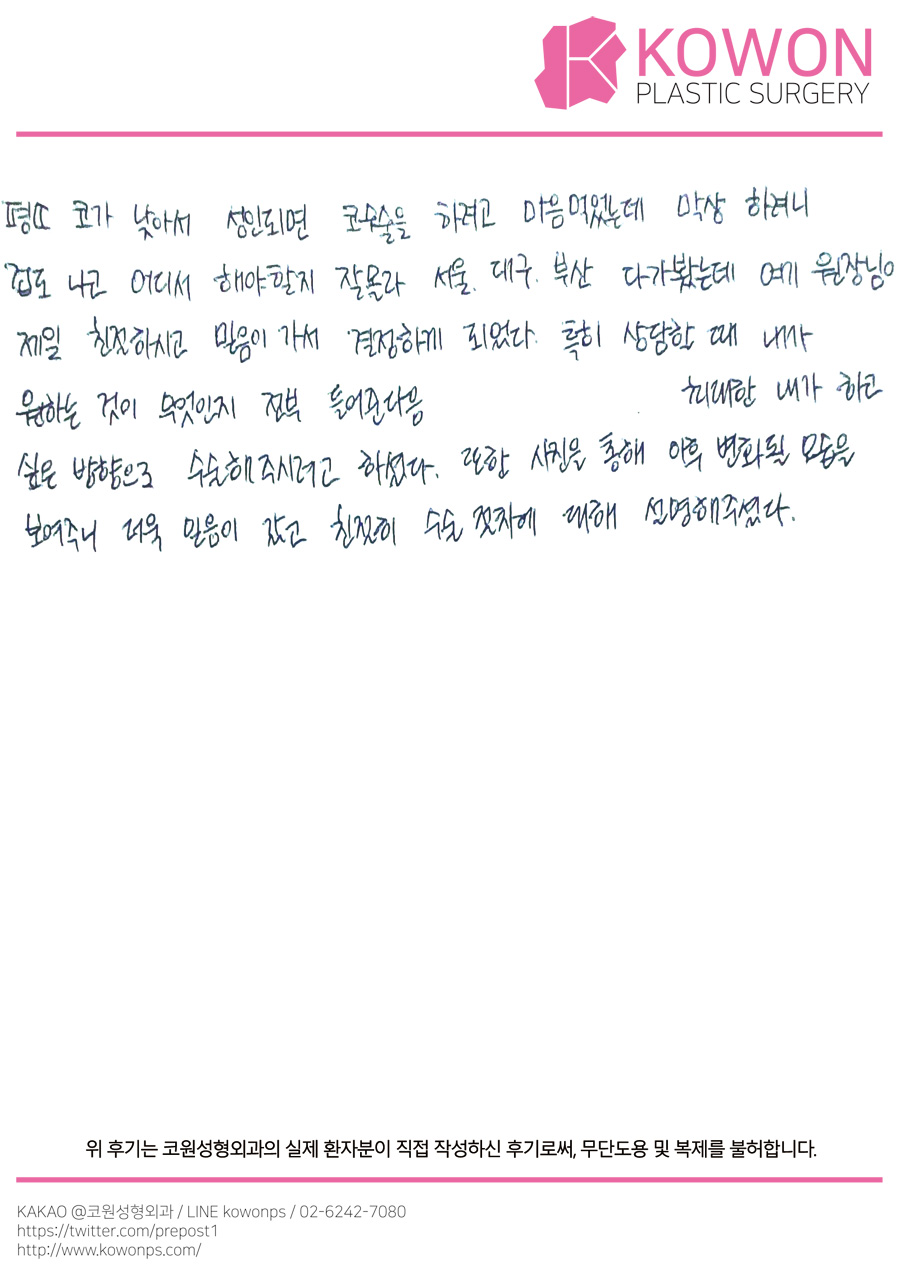 KOWON
PLASTIC SURGERY
평또 코가 낮아서 성인되면 코수술을 하려고 마음먹었는데 막상 하려니
겁도 나고 어디서 해야할지 잘몰라 서울, 대구, 부산 다가봤는데 여기 원장님이
제일 친절하시고 믿음이 가서 결정하게 되었다. 특히 상담할 때 내가
원하는 것이 무엇인지 전부 들어준다음 최대한 내가 하고
싶은 방향으로 수술해주시려고 하셨다. 또한 사진을 통해 이후 변화될 모습을
보여주니 더욱 믿음이 갔고 친절히 수술 절차에 대해 설명해주셨다.
위 후기는 코원성형외과의 실제 환자분이 직접 작성하신 후기로써, 무단도용 및 복제를 불허합니다.
KAKAO @코원성형외과 / LINE kowonps / 02-6242-7080
https://twitter.com/prepost1
http://www.kowonps.com/